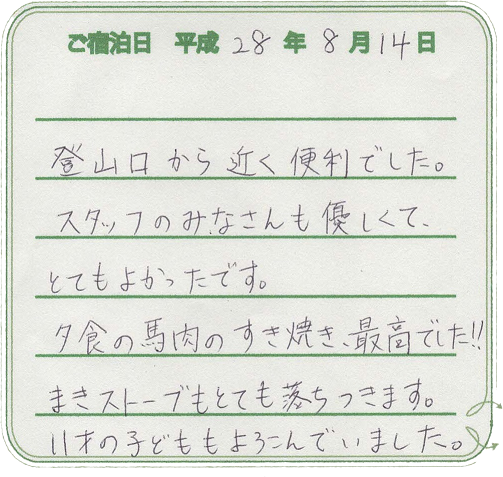 ご宿泊日 平成 28 年 8 月 14 日
登山口から近く便利でした。
スタッフのみなさんも優しくて、
とてもよかったです。
夕食の馬肉のすき焼き、最高でした!!
まきストーブもとても落ちつきます。
11才の子どももよろこんでいました。